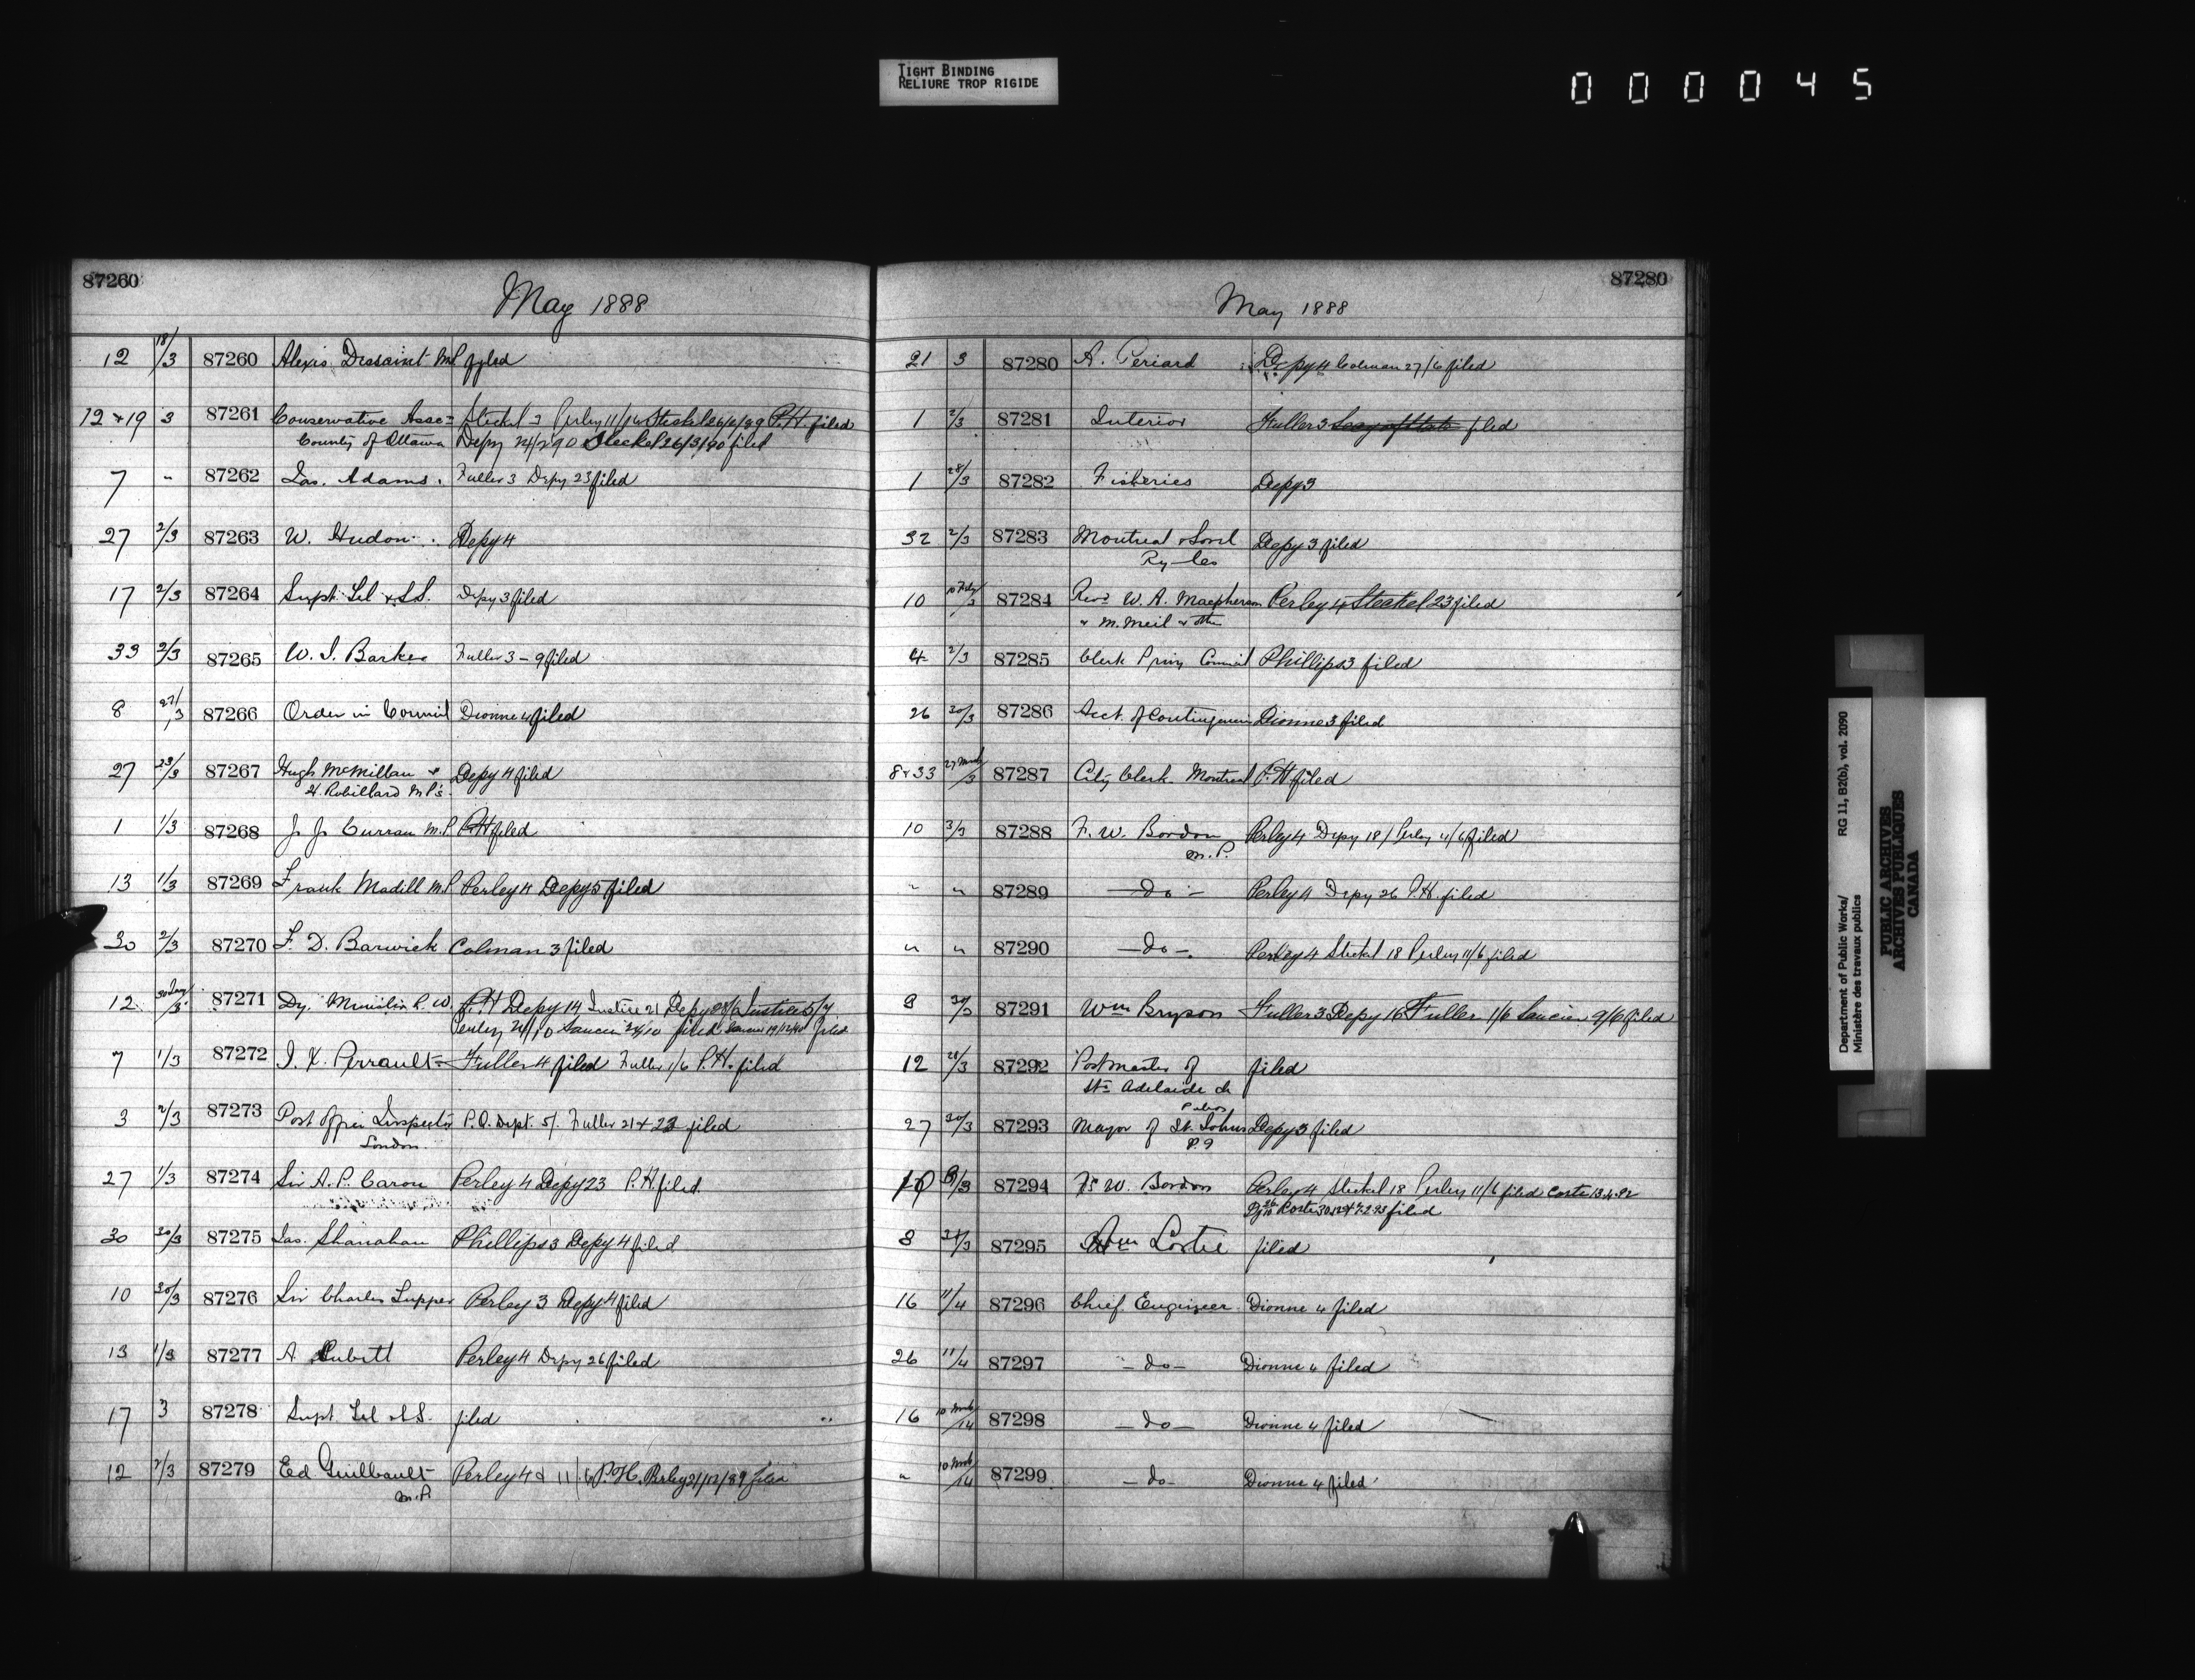 TIGHT BINDING
RELIURE TROP RIGIDE
000045
87260
May 1888
12 18/3 87260 Alexis Dessaint MP filed
12 & 19 3 87261 Conservative Asso= Steckel 3 Perley 11/14 Steckel 26/2/89 P.H. filed
County of Ottawa Depy 24/2 90 Steckel 26/3/90 filed
7 " 87262 Jas. Adams. Fuller 3 Depy 23 filed
27 2/3 87263 W. Hudon Depy 4
17 2/3 87264 Supt. Tel & S.S. Depy 3 filed
33 2/3 87265 W. J. Barker Fuller 3 - 9 filed
8 27/3 87266 Order in Council Dionne 4 filed
27 23/3 87267 Hugh McMillan &
H. Robillard MP's. Depy 4 filed
1 1/3 87268 J J Curran M.P. P.H filed
13 1/3 87269 Frank Madill M.P Perley 4 Depy 5 filed
30 2/3 87270 F. D. Barwick Colman 3 filed
12 30 /3 87271 Dy. Minister P. W. P.H Depy 14 Justice 21 Depy Justice 5/7
Perley 24/10 Saucier 24/10 filed Saucier 19/12/90 filed
7 1/3 87272 J. X. Perrault Fuller 4 filed Fuller 1/6 P.H. filed
3 2/3 87273 Post Office Inspector P.O. Dept. 5/. Fuller 21 & 23 filed
London.
27 1/3 87274 Sir A. P. Caron Perley 4 Depy 23 P.H filed
30 30/3 87275 Jas. Shanahan Phillips 3 Depy 4 filed
10 30/3 87276 Sir Charles Tupper Perley 3 Depy 4 filed
13 1/3 87277 A Cubitt Perley 4 Depy 26 filed
17 3 87278 Supt Tel & S.S. filed
12 2/3 87279 Ed Guilbault Perley 4 & 11/6 P.H. Perley 21/12/89 filed
M.P.
87280
May 1888
21 3 87280 A. Periard Depy 4 Colman 27/6 filed
1 2/3 87281 Interior Fuller 3 Secy of State filed
1 28/3 87282 Fisheries Depy 3
32 2/3 87283 Montreal & Sorel Depy 3 filed
Ry Co
10 10 Feby/3 87284 Revd W. A. Macpherson Perley 4 Steckel 23 filed
& M. Neil & other
4 2/3 87285 Clerk Privy Council Phillips 3 filed
26 30/3 87286 Acct. of Contingencies Dionne 3 filed
8 & 33 27 March/3 87287 City Clerk Montreal P.H filed
10 3/3 87288 F. W. Borden Perley 4 Depy 18/ Perley 11/6 filed
M.P.
" " 87289 - do - Perley 4 Depy 26 P.H. filed
" " 87290 - do - Perley 4 Steckel 18 Perley 11/6 filed
8 30/3 87291 Wm Bryson Fuller 3 Depy 16 Fuller 1/6 Saucier 9/6 filed
12 28/3 87292 Postmaster of filed
Ste Adelaide de
Pabos
27 30/3 87293 Mayor of St. Johns Depy 3 filed
P.Q
10 3/3 87294 F. W. Borden Perley 4 Steckel 18 Perley 11/6 filed Coste 13.4.92
filed
8 31/3 87295 Wm Lortie filed
16 11/4 87296 Chief Engineer Dionne 4 filed
26 11/4 87297 - do - Dionne 4 filed
16 10 March/14 87298 - do - Dionne 4 filed
" 10 March/14 87299 - do - Dionne 4 filed
Department of Public Works/ RG 11, B2(b), vol. 2090
Ministère des travaux publics
PUBLIC ARCHIVES
ARCHIVES PUBLIQUES
CANADA